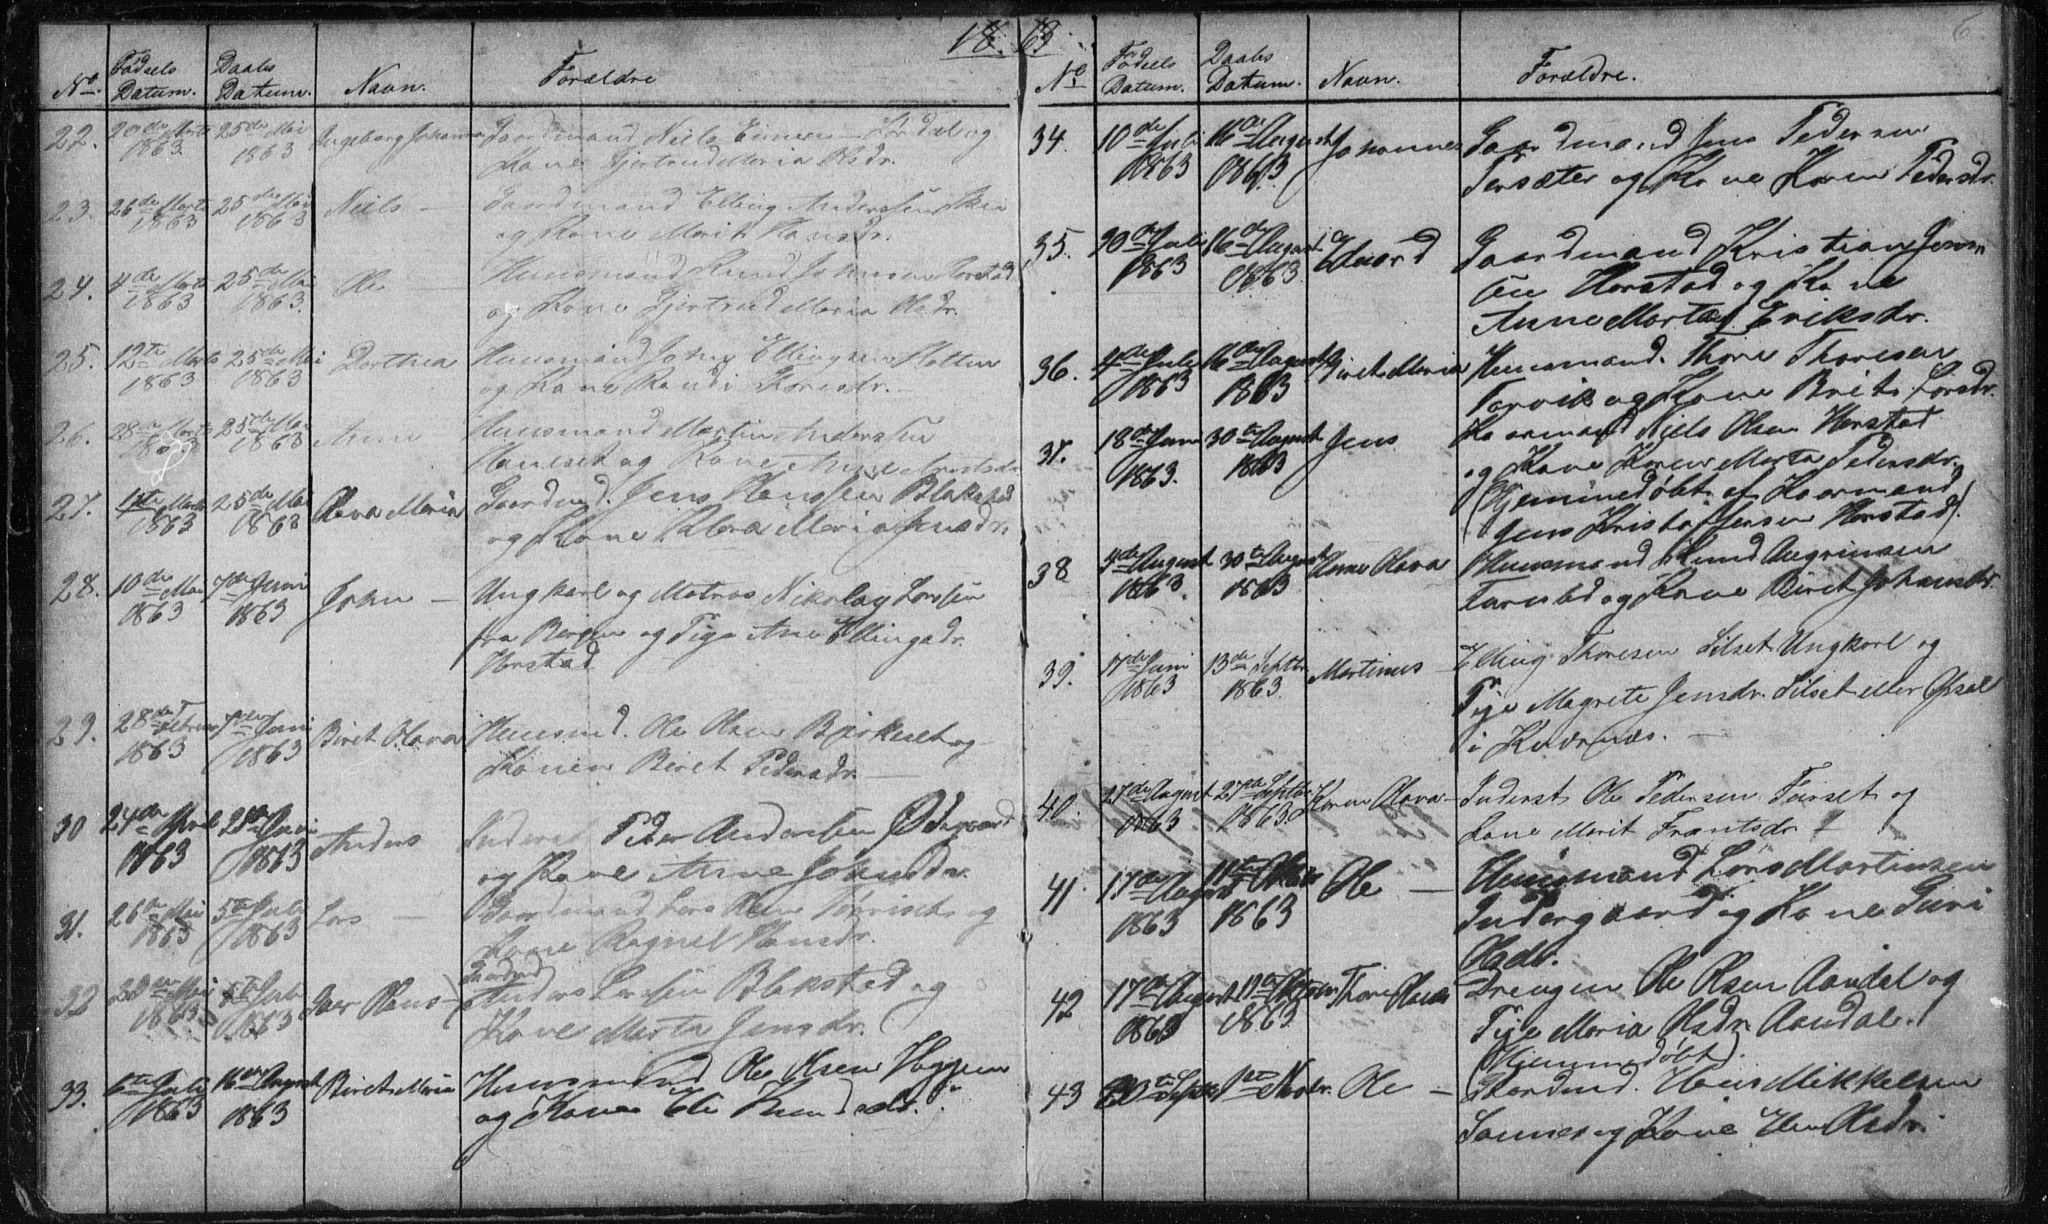 18 63
6
No. Fødsels Datum. Daabs Datum. Navn. Forældre
22. 20de Marts 1863 25de Mai 1863 Ingeborg Johanna Gaardmand Niels og
Kone Gjertrud Maria Olsdr.
23. 26de Marts 1863 25de Mai 1863 Niels — Gaardmand Elling Anderssen
og Kone Marit Hansdr.
24. 4de Marts 1863 25de Mai 1863. Ole — Huusmand Knud Johnsen Horstad
og Kone Gjertrud Maria Olsdr.
25. 12te Marts 1863 25de Mai 1863 Dorthea Huusmand John Ellingsen Holten
og Kone Randi Larsdr. —
26. 28de Marts 25de Mai 1863 Anne Huusmand Martin Anderssen
og Kone Ane
27. Marts 1863 25de Mai 1863 Olava Maria Gaardmd. Jens Hanssen Blakstad
og Kone Maria Jensdr.
28. 10de Mai 1863 7de Juni 1863 John — Ungkarl og Matros Nikolay Larssen
fra Bergen og Pige Ane Ellingsdr.
Horstad
29. 28de Februar 1863 7de Juni 1863 Beret Olava Huusmd. Ole Olsen Bjerkset og
Konen Beret Pedersdr. —
30 24de April 1863 21de Juni 1863 Anders Inderst Peder Anderssen Ødegaard
og Kone Anne Johnsdr.
31. 26de Mai 1863 5te Juli 1863 Lars — Gaardmand Lars Olsen og
Kone Ragnel Hansdr.
32 Mai 1863 5te Juli 1863 Iver Hans — Gaardmd
Anders Larssen Blakstad og
Kone Marta Jensdr.
33. 6te Juli 1863 16de August 1863 Beret Maria Huusmand Ole Olsen Hoggen
og Kone Eli Knudsdr.
No Fødsels Datum. Daabs Datum. Navn. Forældre.
34. 10de Juli 1863 16de August 1863 Johannes Gaardmand Jens Pedersen
Tersæter og Kone Karen Pedersdr.
35. 30de Juli 1863 16de August 1863 Edvard Gaardmand Kristian Jens
sen Horstad og Kone
Anne Marta Eriksdr.
36. 4de Juli 1863 16de August 1863 Beret Maria Huusmand. Thore Thoresen
Torvik og Kone Brit Larsdr.
37. 18de Juni 1863. 30te August 1863 Jens Kaarmand Niels Olsen Horstad
og Kone Karen Marta Pedersdr.
(Hjemmedøbt af Kaarmand
Jens Kristoffersen Horstad).
38 4de August 1863. 30te August 1863 Anne Olava Huusmand Knud Asgrimsen
Farstad og Kone Beret Johansdr.
39. 17de Juni 1863 13de Septbr. 1863. Martinus — Elling Thoresen Silset Ungkarl og
Pige Magrete Jensdr. Silset eller
i Kvernæs. —
40. 27de August 1863 27de Septbr. 1863. Karen Olava — Inderst Ole Pedersen og
Kone Marit Frantsdr.
41. 17de August 1863 11te Oktober 1863 Ole — Huusmand Lars Martinsen
Indergaard og Kone Guri
Olsdr.
42 17de August 1863 11te Oktober 1863 Thore Drengen Ole Olsen Aandal og
Pige Maria Olsdr. Aandal.
(Hjemmedøbt).
43 20de Septbr 1ste Novbr. Ole — Gaardmd. Hans Mikkelsen
Sannes og Kone Olsdr.